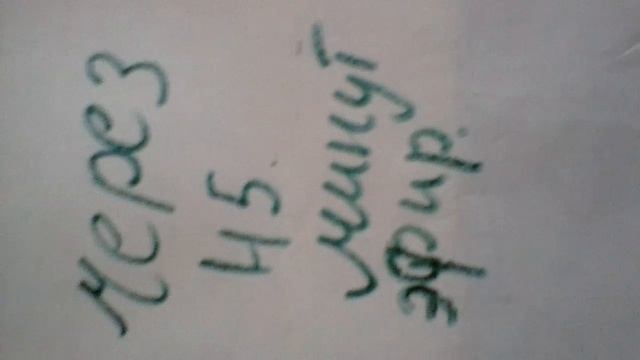 через
45
минут
эфир.